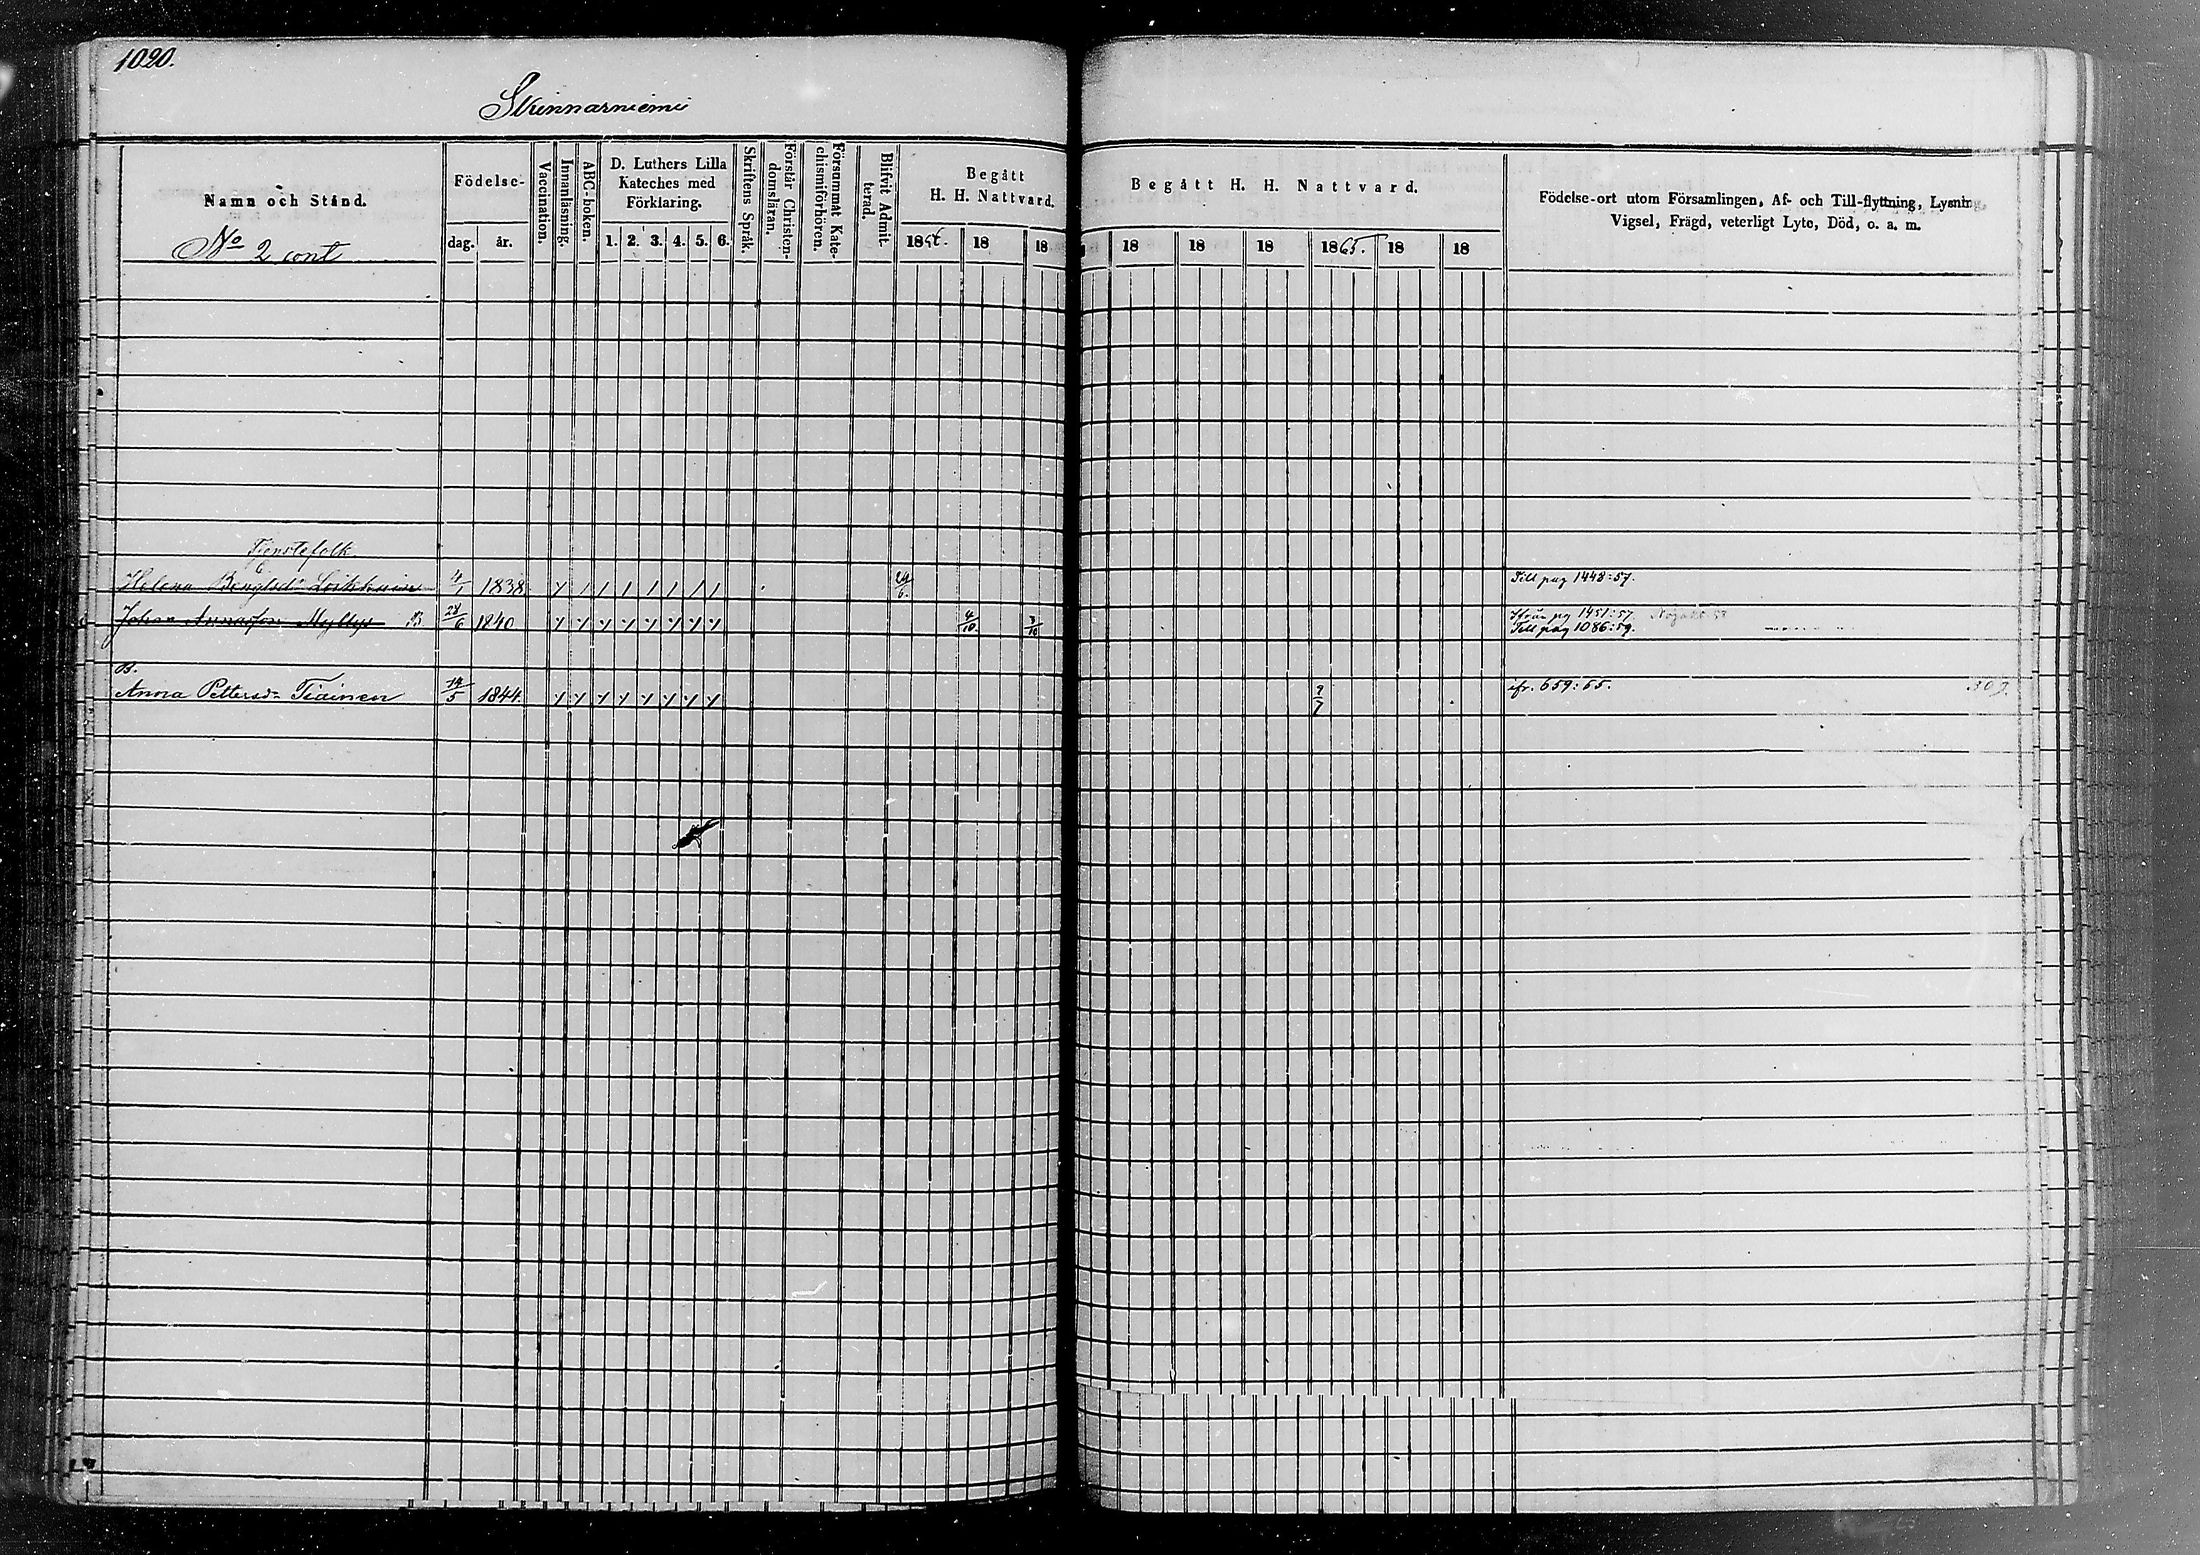 1020.
Skinnarniemi
Namn och Stånd.
No 2 cont
Födelse-
dag. år.
Vaccination.
Innanläsning.
ABC-boken.
D. Luthers Lilla
Kateches med
Förklaring.
1. 2. 3. 4. 5. 6.
Skriftens Språk.
Förstår Christen-
domsläran.
Försummat Kate-
chismiförhören.
Blifvit Admit-
terad.
Begått
H. H. Nattvard.
1856. 18 18
Begått H. H. Nattvard.
18 18 18 1865. 18 18
Födelse-ort utom Församlingen, Af- och Till-flyttning, Lysning,
Vigsel, Frägd, veterligt Lyte, Död, o. a. m.
Tjenstefolk
Helena Bengtsdr Loikkain 4/1 1838. 24/6. Till pag 1448:57.
Johan Annasson Myllys B. 28/6 1840 4/10. 3/10 Ifrån pg 1451:57.
Till pag 1086:59.
B.
Anna Pettersdr Tiainen 14/5 1844. 9/7 ifr. 659:65. 309.